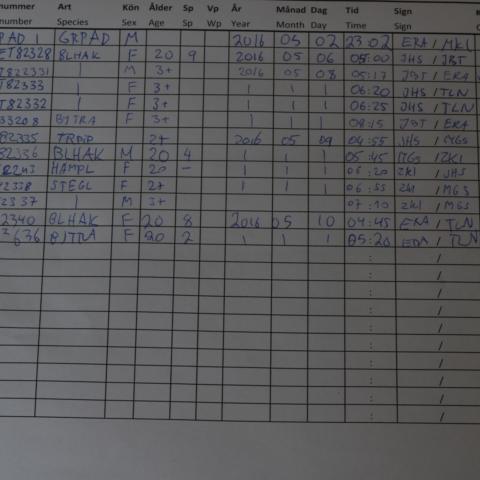 nummer Art Kön Ålder Sp Vp År Månad Dag Tid Sign
number Species Sex Age Sp Wp Year Month Day Time Sign
PAD 1 GRPAD M 2016 05 02 23:02 ERA / MKL
ET82328 BLHAK F 20 9 2016 05 06 05:00 JHS / JBT
T822331 | M 3+ 2016 05 08 05:17 JBT / ERA
T82333 | F 3+ | | | 06:20 JHS / TLN
T82332 | F 3+ | | | 06:25 JHS / TLN
33208 BITRA F 3+ | | | 08:15 JBT / ERA
82335 TRPIP 2+ 2016 05 09 04:55 JHS / MGS
82336 BLHAK M 20 4 | | | 05:45 MGS / ZKL
HAMPL F 20 – | | | 06:20 ZKL / JHS
2338 STEGL F 2+ | | | 06:55 ZKL / MGS
2337 | M 3+ 07:10 ZKL / MGS
2340 BLHAK F 20 8 2016 05 10 04:45 ERA / TLN
636 BITRA F 20 2 | | | 05:20 ERA / TLN
: /
: /
: /
: /
: /
: /
: /
: /
: /